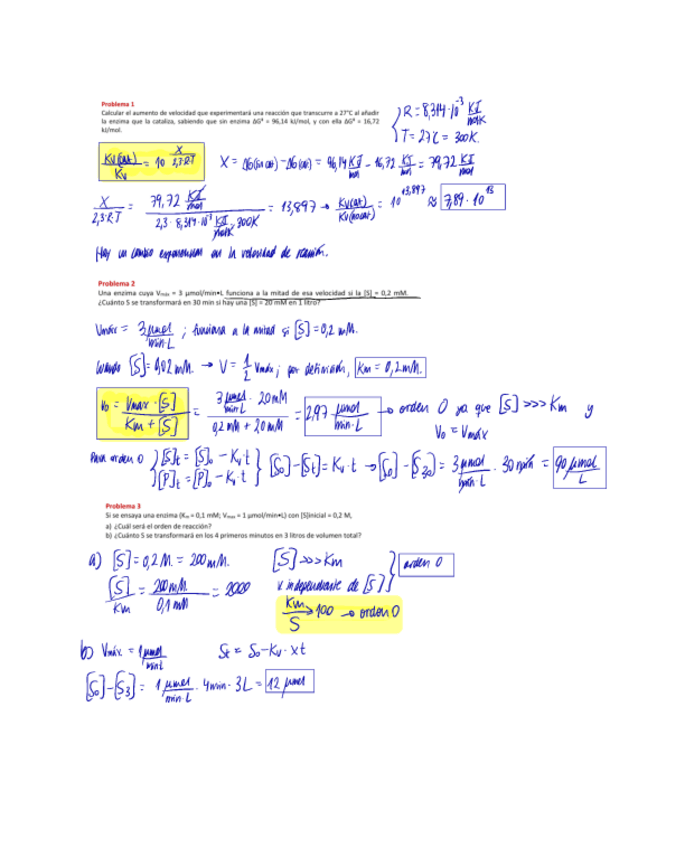 Problema 1
Calcular el aumento de velocidad que experimentará una reacción que transcurre a 27°C al añadir
la enzima que la cataliza, sabiendo que sin enzima ΔG‡ = 96,14 kJ/mol, y con ella ΔG‡ = 16,72
kJ/mol.
R = 8,314·10^-3 KJ/mol·K
T = 27°C = 300K.
Kv(cat)/Kv = 10^(X/2,3·R·T)
X = ΔG(sin cat) - ΔG(cat) = 96,14 KJ/mol - 16,72 KJ/mol = 79,72 KJ/mol
X/2,3·R·T = 79,72 KJ/mol / 2,3 · 8,314·10^-3 KJ/mol·K · 300K = 13,897 → Kv(cat)/Kv(no cat) = 10^13,897 ≈ 7,89·10^13
Hay un cambio exponencial en la velocidad de reacción.
Problema 2
Una enzima cuya Vmáx = 3 μmol/min•L funciona a la mitad de esa velocidad si la [S] = 0,2 mM.
¿Cuánto S se transformará en 30 min si hay una [S] = 20 mM en 1 litro?
Vmáx = 3 μmol/min·L ; funciona a la mitad si [S] = 0,2 mM.
Cuando [S] = 0,02 mM. → V = 1/2 Vmáx ; por definición, Km = 0,2 mM.
V0 = Vmax·[S]/Km + [S] = 3 μmol/min·L · 20mM / 0,2 mM + 20 mM = 2,97 μmol/min·L → orden 0 ya que [S] >>> Km y
V0 = Vmáx
Para orden 0 } [S]t = [S]0 - Kv·t
[P]t = [P]0 - Kv·t } [S0] - [St] = Kv·t → [S0] - [S30] = 3 μmol/min·L · 30 min = 90 μmol/L
Problema 3
Si se ensaya una enzima (Km = 0,1 mM; Vmax = 1 μmol/min•L) con [S]inicial = 0,2 M,
a) ¿Cuál será el orden de reacción?
b) ¿Cuánto S se transformará en los 4 primeros minutos en 3 litros de volumen total?
a) [S] = 0,2 M. = 200 mM. [S] >>> Km } orden 0
[S]/Km = 200 mM/0,1 mM = 2000 v independiente de [S] }
Km/S > 100 → orden 0
b) Vmáx. = 1 μmol/min·L St = S0 - Kv · xt
[S0] - [S3] = 1 μmol/min·L · 4 min · 3 L = 12 μmol